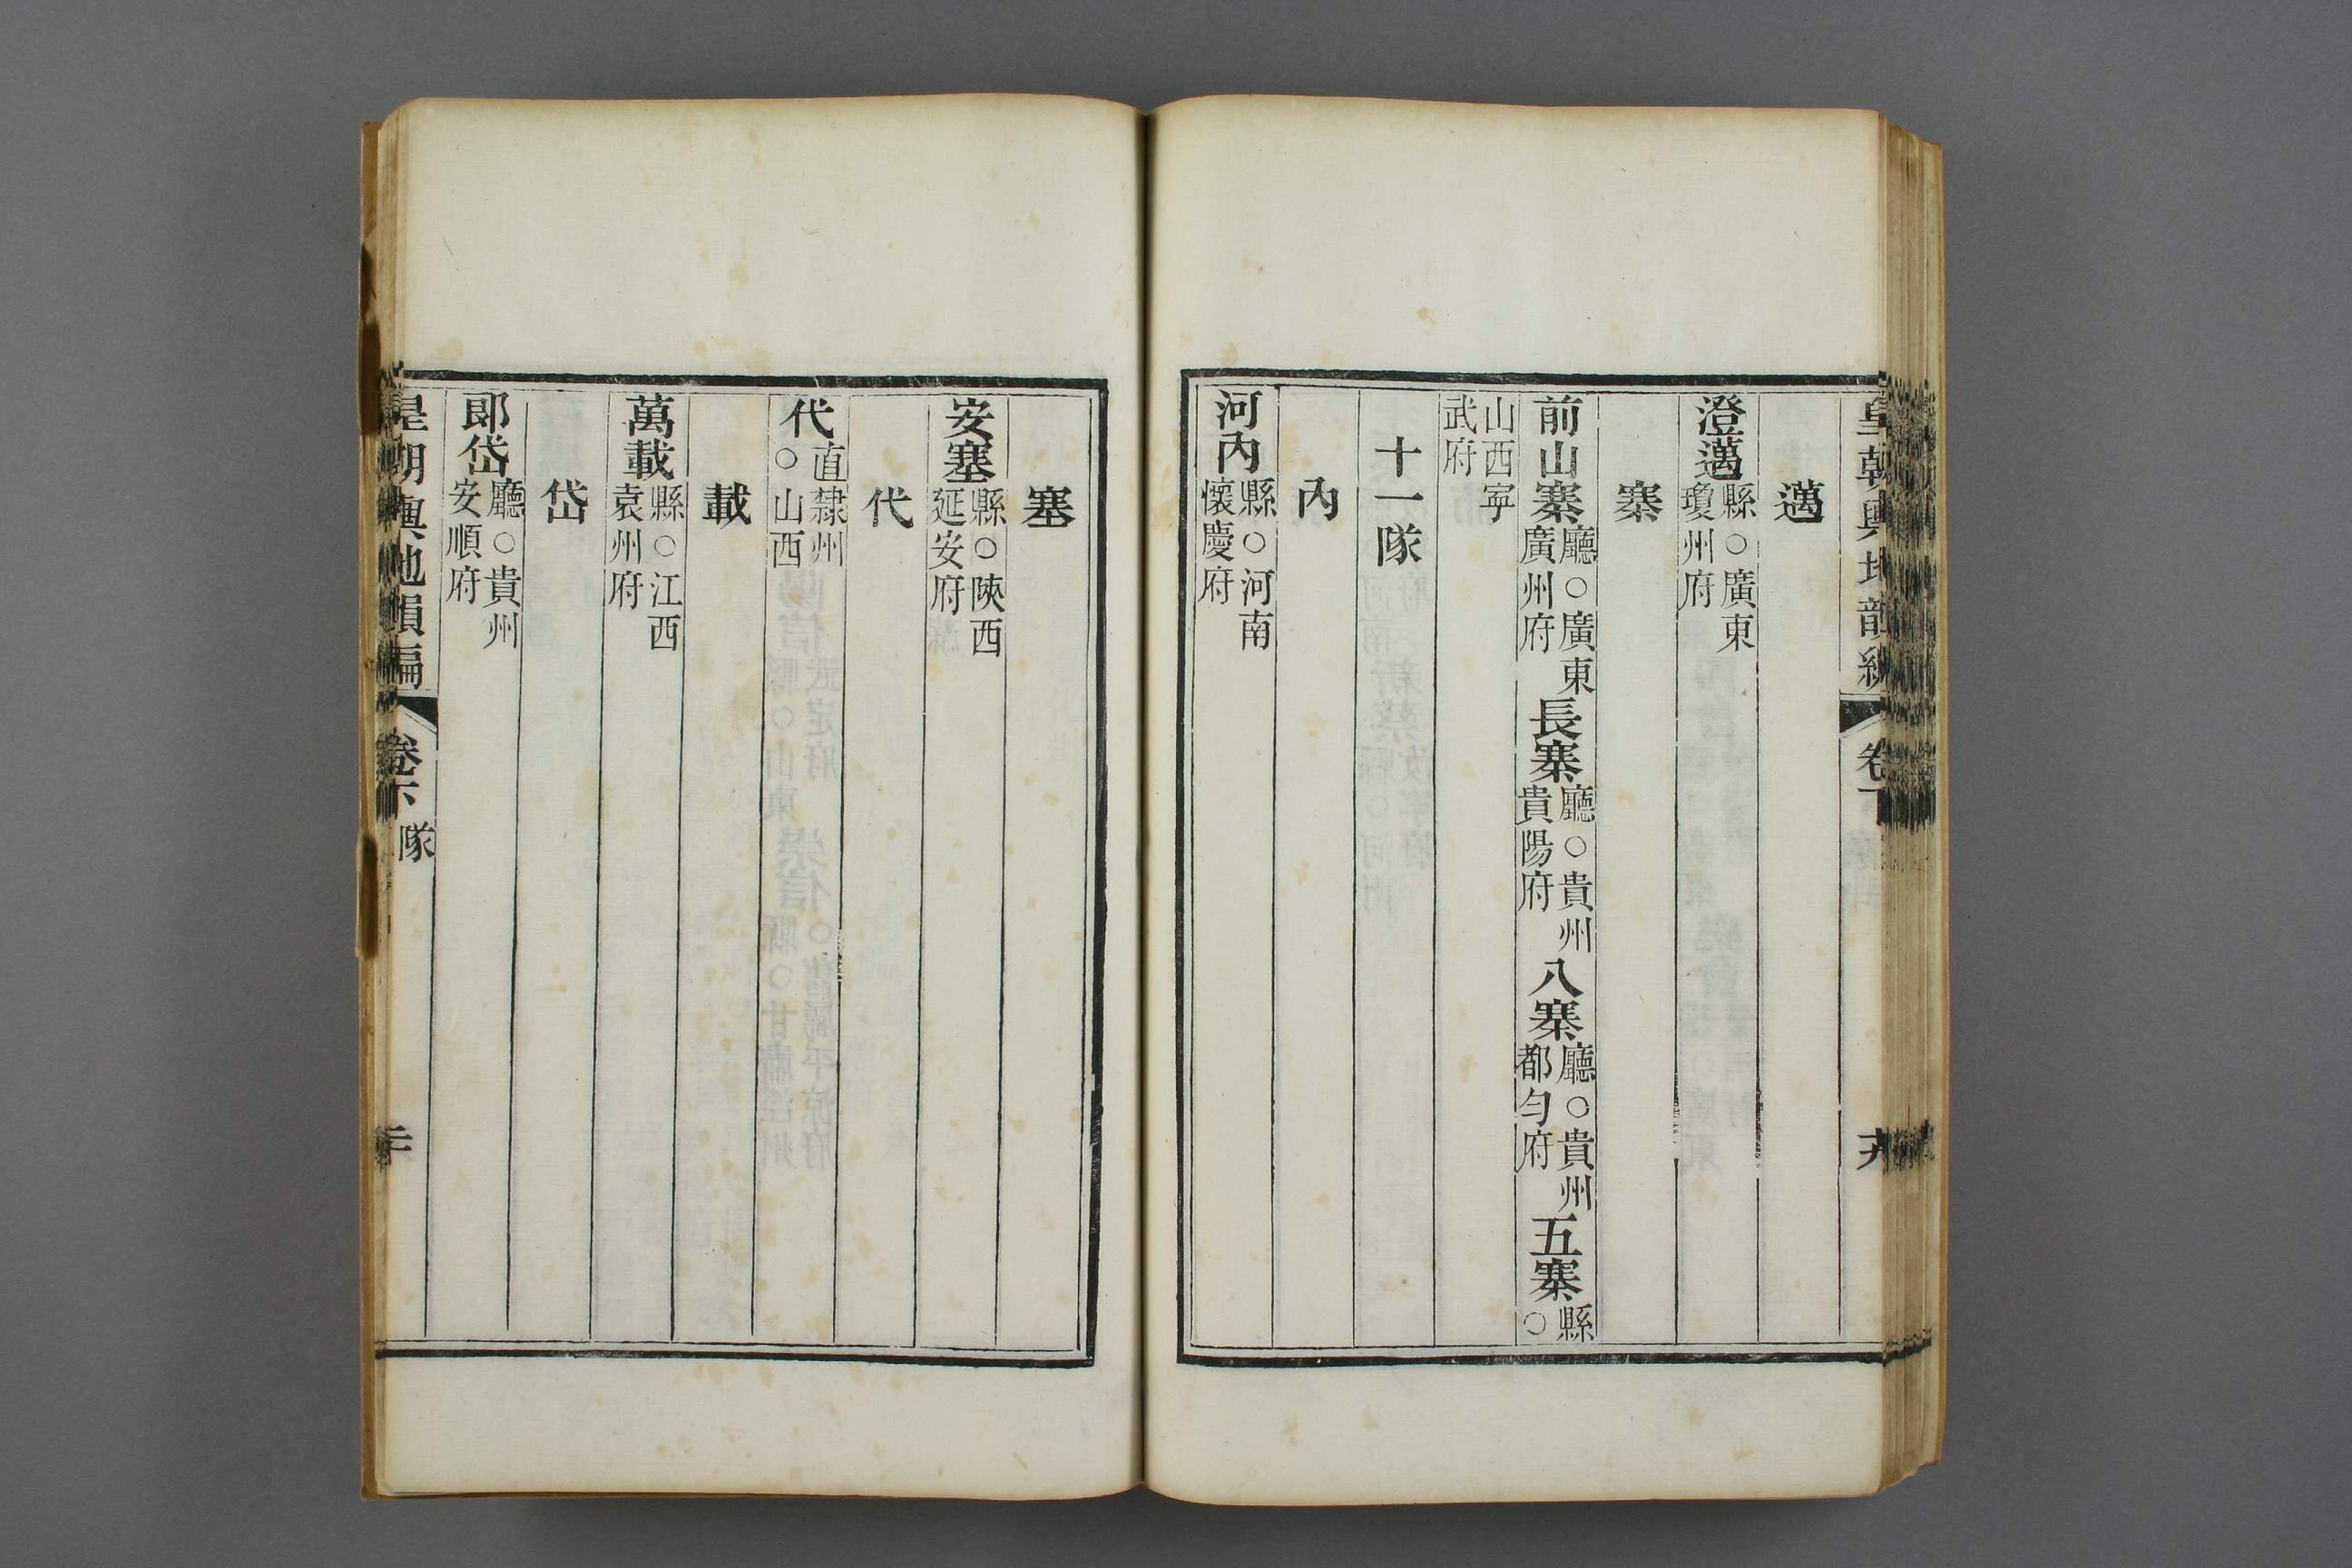 皇朝輿地韻編 卷下 九
邁
澄邁縣○廣東瓊州府
寨
前山寨廳○廣東廣州府長寨廳○貴州貴陽府八寨廳○貴州都勻府五寨縣○
山西寧武府
十一隊
內
河內縣○河南懷慶府
塞
安塞縣○陝西延安府
代
代直隸州○山西
載
萬載縣○江西袁州府
岱
郎岱廳○貴州安順府
皇朝輿地韻編 卷下 隊